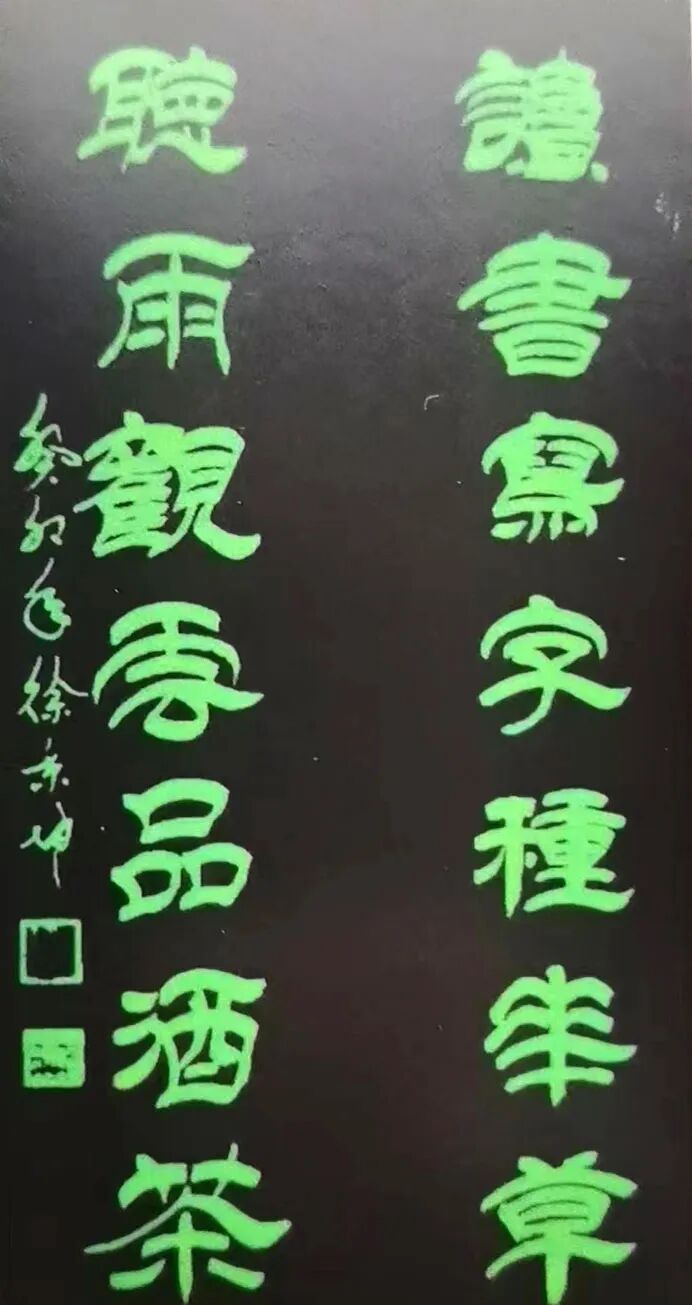 讀書寫字種花草
聽雨觀雲品酒茶
癸卯年徐秉坤